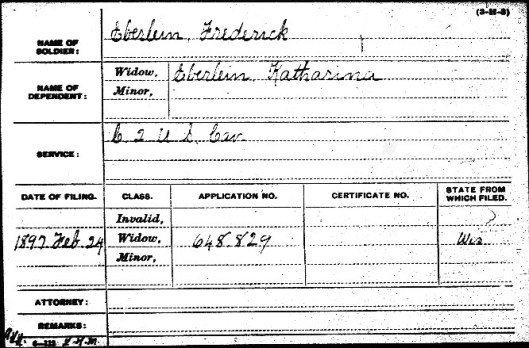 (3-111-3)
NAME OF SOLDIER: Eberlein, Frederick
NAME OF DEPENDENT: Widow, Eberlein, Katharina
Minor,
SERVICE: C 2 U.S. Cav.
DATE OF FILING. CLASS. APPLICATION NO. CERTIFICATE NO. STATE FROM WHICH FILED.
Invalid,
1897 Feb. 24 Widow, 648.829 Wis
Minor,
ATTORNEY:
REMARKS: